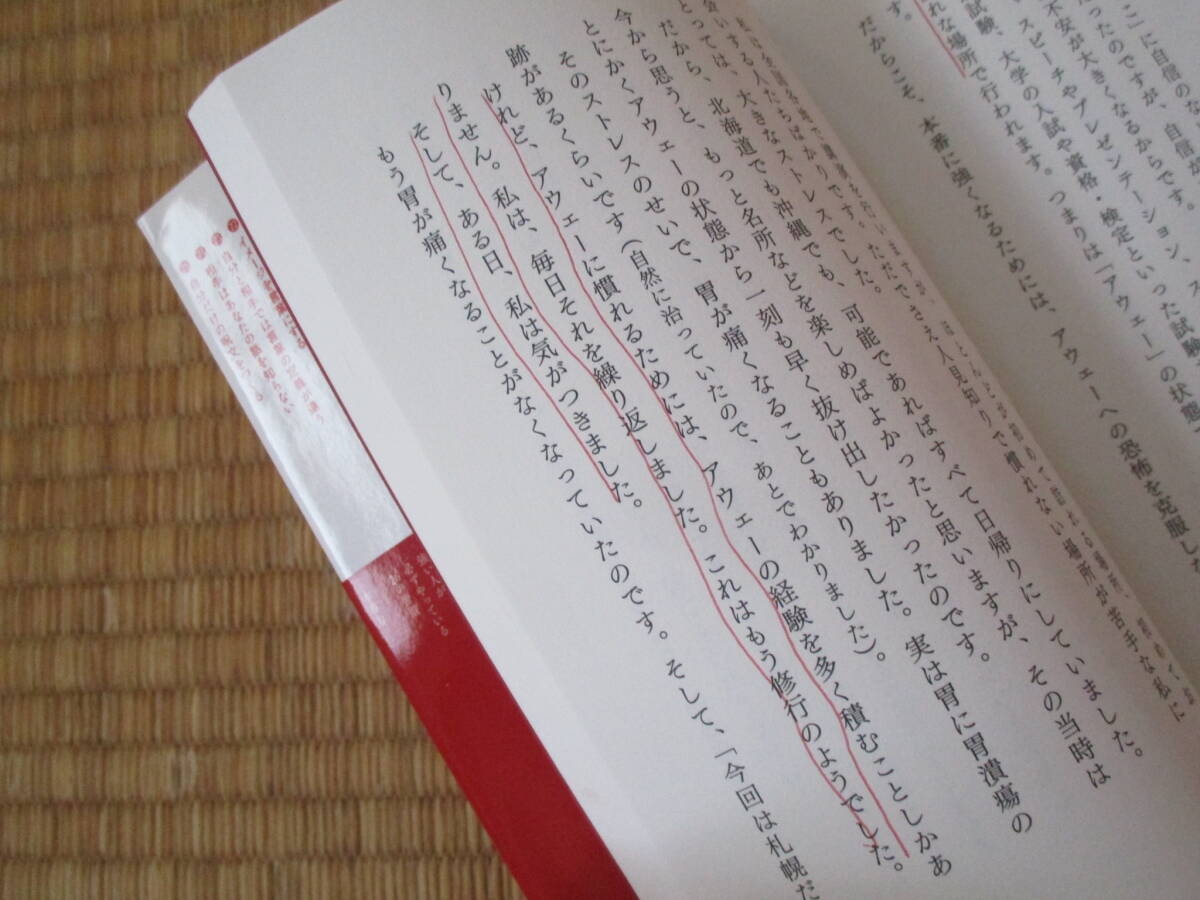 ここ」に自信のな
だったのですが、自信が
不安が大きくなるからです。
スピーチやアプレゼンテーション、ス
試験、大学の入試や資格・検定といった試験
れな場所で行われます。つまりは「アウェー」の状態で
す。
だからこそ、本番に強くなるためには、アウェーへの恐怖を克服し
会いする人たちばかりです。ただでさえ人見知りで慣れない場所が苦手な私に
とっては、大きなストレスでした。
だから、北海道でも沖縄でも、可能であればすべて日帰りにしていました。
今から思うと、もっと名所などを楽しめばよかったと思いますが、その当時は
とにかくアウェーの状態から一刻も早く抜け出したかったのです。
そのストレスのせいで、胃が痛くなることもありました。実は胃に胃潰瘍の
跡があるくらいです（自然に治っていたので、あとでわかりました）。
けれど、アウェーに慣れるためには、アウェーの経験を多く積むことしかあ
りません。私は、毎日それを繰り返しました。これはもう修行のようでした。
そして、ある日、私は気がつきました。
もう胃が痛くなることがなくなっていたのです。そして、「今回は札幌だ
イメージを鮮明にする
自分と相手では言葉の定義が違う
相手はあなたの顔を知らない
自分だけの呪文をつくる
強い人が
必ずやっている